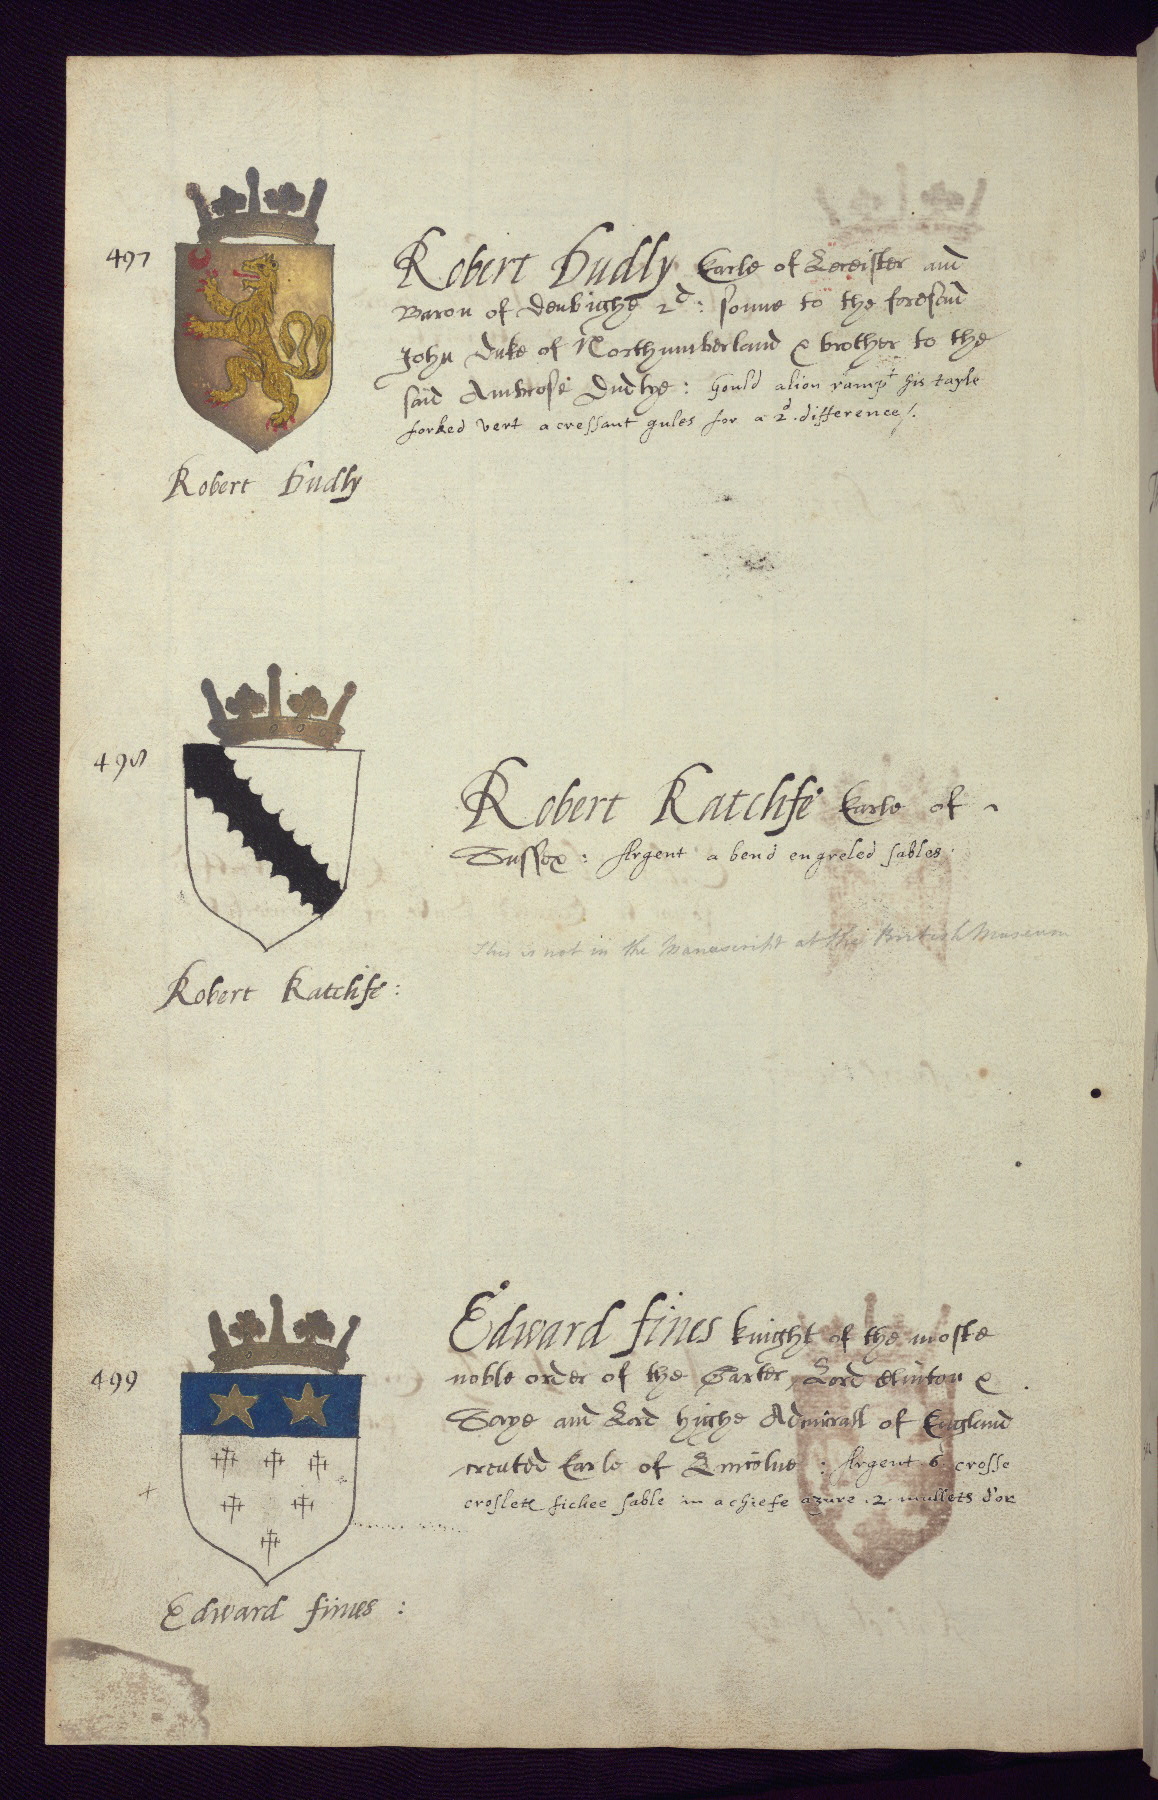 497
Robert Dudly Earle of Leceister and
Baron of Denbighe 2d: sonne to the foresaid
John Duke of Northumberland & brother to the
said Ambrose Dudlye: Gould a lion rampt his tayle
forked vert a cressant gules for a 2d. difference/.
Robert Dudly
498
Robert Ratclife Earle of
Sussex: Argent a bend engreled sables.
This is not in the Manuscript at the British Museum
Robert Ratclife:
499
Edward fines knight of the moste
noble order of the Garter, Lord Clinton &
Saye and Lord highe Admirall of England
created Earle of Lincolne: Argent 6 crosse
croslete fichee sable in a chiefe azure .2. mullets d'or
Edward fines: